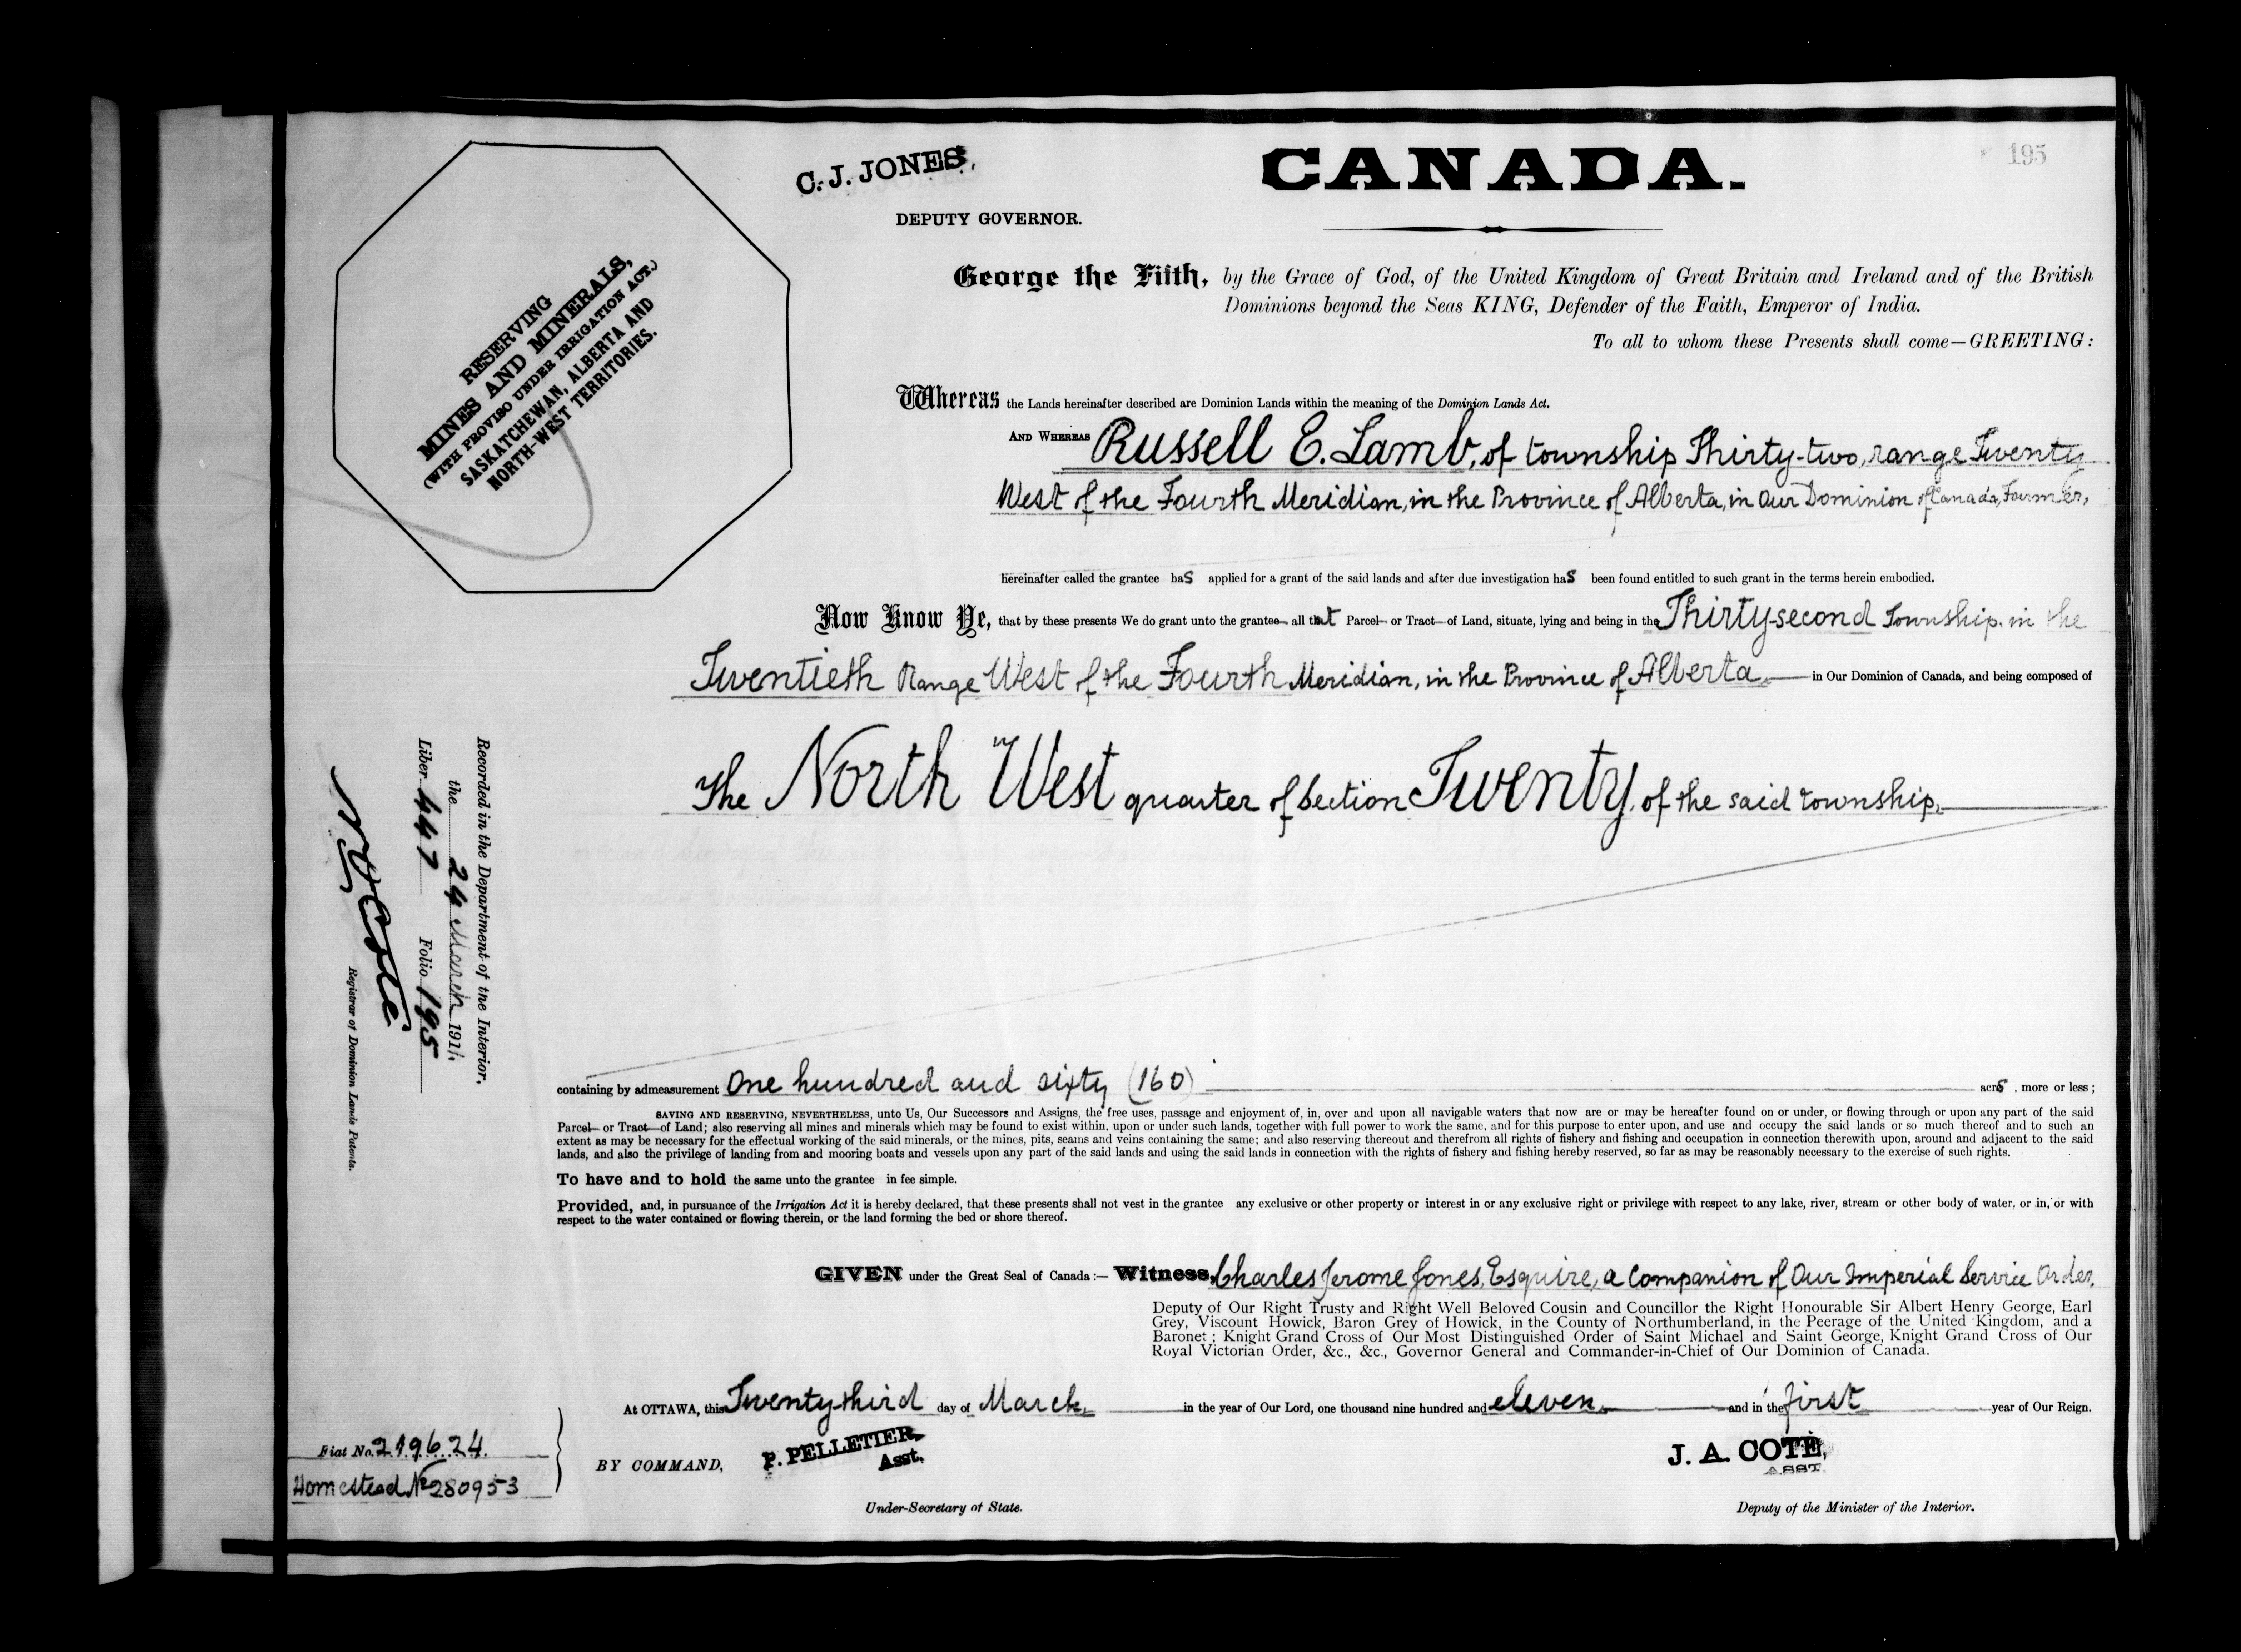 195
C. J. JONES,
DEPUTY GOVERNOR.
CANADA.
RESERVING
MINES AND MINERALS,
(WITH PROVISO UNDER IRRIGATION ACT.)
SASKATCHEWAN, ALBERTA AND
NORTH-WEST TERRITORIES.
George the Fifth, by the Grace of God, of the United Kingdom of Great Britain and Ireland and of the British
Dominions beyond the Seas KING, Defender of the Faith, Emperor of India.
To all to whom these Presents shall come—GREETING:
Whereas the Lands hereinafter described are Dominion Lands within the meaning of the Dominion Lands Act.
AND WHEREAS Russell E. Lamb, of township Thirty-two, range Twenty
West of the Fourth Meridian, in the Province of Alberta, in Our Dominion of Canada, Farmer,
hereinafter called the grantee has applied for a grant of the said lands and after due investigation has been found entitled to such grant in the terms herein embodied.
Now Know Ye, that by these presents We do grant unto the grantee all that Parcel or Tract of Land, situate, lying and being in the Thirty-second Township, in the
Twentieth Range West of the Fourth Meridian, in the Province of Alberta, in Our Dominion of Canada, and being composed of
The North West quarter of Section Twenty, of the said township,
containing by admeasurement One hundred and sixty (160) acrs, more or less;
SAVING AND RESERVING, NEVERTHELESS, unto Us, Our Successors and Assigns, the free uses, passage and enjoyment of, in, over and upon all navigable waters that now are or may be hereafter found on or under, or flowing through or upon any part of the said
Parcel or Tract of Land; also reserving all mines and minerals which may be found to exist within, upon or under such lands, together with full power to work the same, and for this purpose to enter upon, and use and occupy the said lands or so much thereof and to such an
extent as may be necessary for the effectual working of the said minerals, or the mines, pits, seams and veins containing the same; and also reserving thereout and therefrom all rights of fishery and fishing and occupation in connection therewith upon, around and adjacent to the said
lands, and also the privilege of landing from and mooring boats and vessels upon any part of the said lands and using the said lands in connection with the rights of fishery and fishing hereby reserved, so far as may be reasonably necessary to the exercise of such rights.
To have and to hold the same unto the grantee in fee simple.
Provided, and, in pursuance of the Irrigation Act it is hereby declared, that these presents shall not vest in the grantee any exclusive or other property or interest in or any exclusive right or privilege with respect to any lake, river, stream or other body of water, or in, or with
respect to the water contained or flowing therein, or the land forming the bed or shore thereof.
GIVEN under the Great Seal of Canada:— Witness, Charles Jerome Jones, Esquire, a Companion of Our Imperial Service Order,
Deputy of Our Right Trusty and Right Well Beloved Cousin and Councillor the Right Honourable Sir Albert Henry George, Earl
Grey, Viscount Howick, Baron Grey of Howick, in the County of Northumberland, in the Peerage of the United Kingdom, and a
Baronet; Knight Grand Cross of Our Most Distinguished Order of Saint Michael and Saint George, Knight Grand Cross of Our
Royal Victorian Order, &c., &c., Governor General and Commander-in-Chief of Our Dominion of Canada.
At OTTAWA, this Twenty-third day of March, in the year of Our Lord, one thousand nine hundred and eleven, and in the first year of Our Reign.
BY COMMAND,
P. PELLETIER,
Asst.
Under-Secretary of State.
J. A. COTÉ,
ASST.
Deputy of the Minister of the Interior.
Recorded in the Department of the Interior,
the 24 March 1911.
Liber 447 Folio 195
N O Coté
Registrar of Dominion Lands Patents.
Fiat No. 219624.
Homestead No 280953